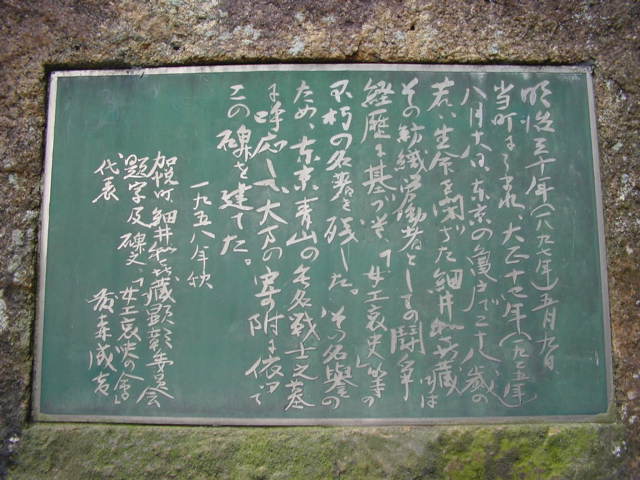 明治三十年(一八九七年)五月九日
当町に生まれ、大正十四年(一九二五年)
八月十八日、東京の亀戸で二十八歳の
若い生命を閉ざした細井和喜蔵は
その紡織労働者としての闘争
経歴に基づき、「女工哀史」等の
不朽の名著を残した。その名誉の
ため、東京青山の無名戦士之墓
に呼応して、大方の寄附に依って
この碑を建てた。
一九五八年秋
加悦町 細井和喜蔵顕彰委員会
題字及碑文「女工哀史の会」
代表 藤森成吉